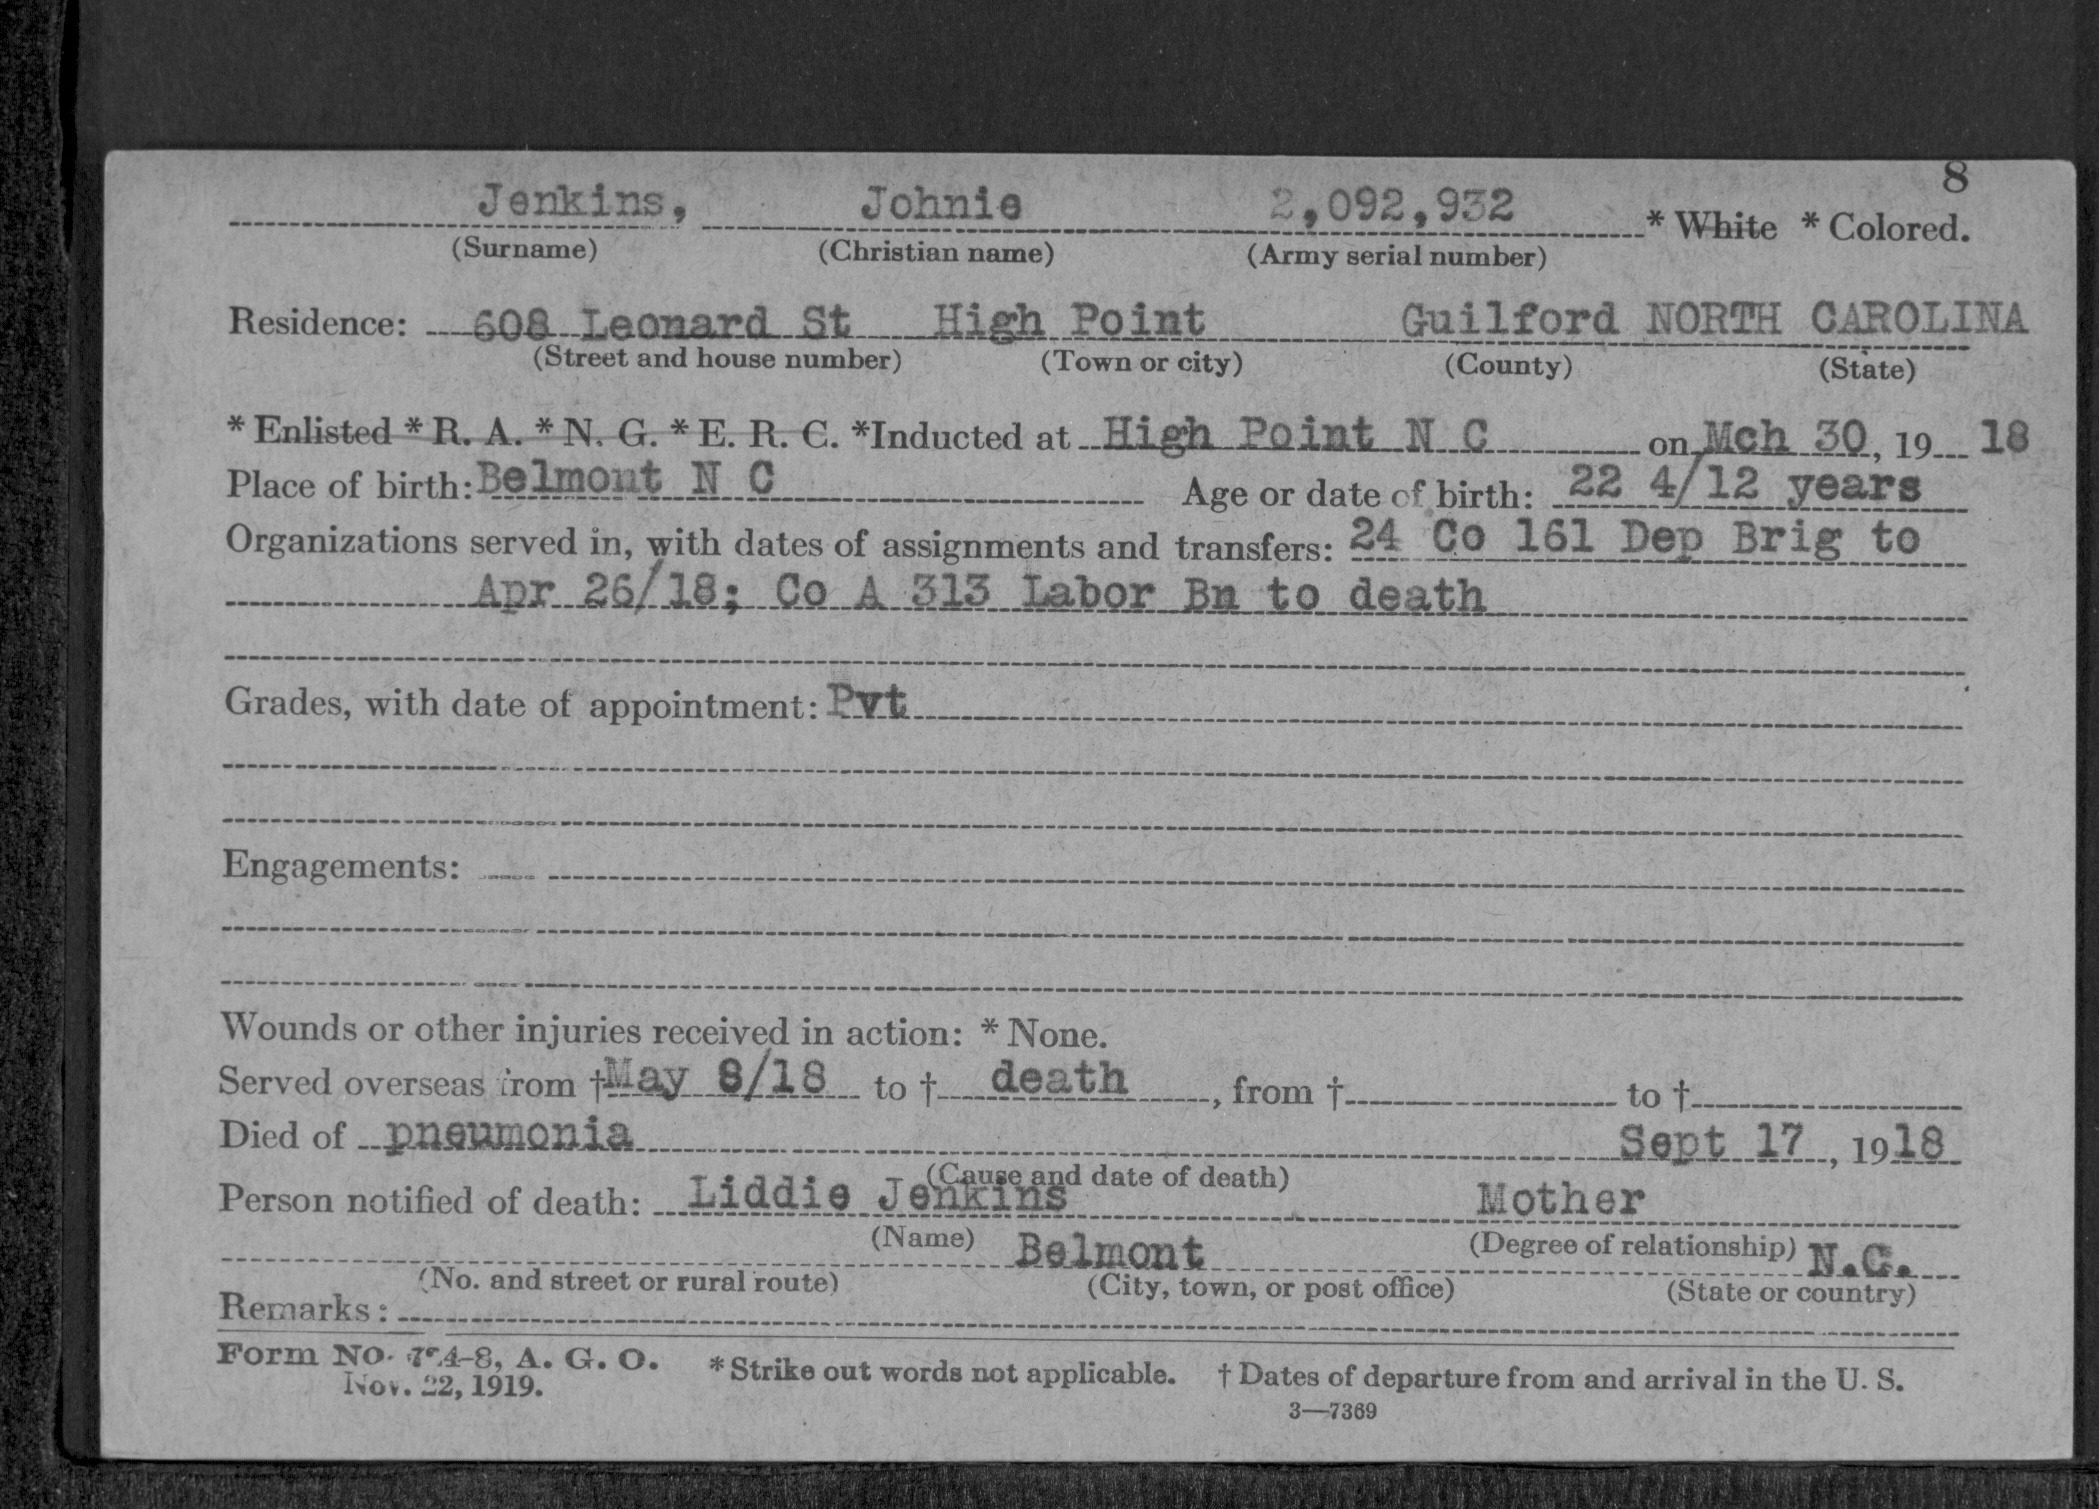 8
Jenkins, Johnie 2,092,932 * White * Colored.
(Surname) (Christian name) (Army serial number)
Residence: 608 Leonard St High Point Guilford NORTH CAROLINA
(Street and house number) (Town or city) (County) (State)
* Enlisted * R. A. * N. G. * E. R. C. *Inducted at High Point N C on Mch 30, 19 18
Place of birth: Belmont N C Age or date of birth: 22 4/12 years
Organizations served in, with dates of assignments and transfers: 24 Co 161 Dep Brig to
Apr 26/18; Co A 313 Labor Bn to death
Grades, with date of appointment: Pvt
Engagements:
Wounds or other injuries received in action: * None.
Served overseas from † May 8/18 to † death, from † to †
Died of pneumonia Sept 17, 1918
(Cause and date of death)
Person notified of death: Liddie Jenkins Mother
(Name) (Degree of relationship)
Belmont N.C.
(No. and street or rural route) (City, town, or post office) (State or country)
Remarks:
Form No. 724-8, A. G. O. * Strike out words not applicable. † Dates of departure from and arrival in the U. S.
Nov. 22, 1919.
3—7369